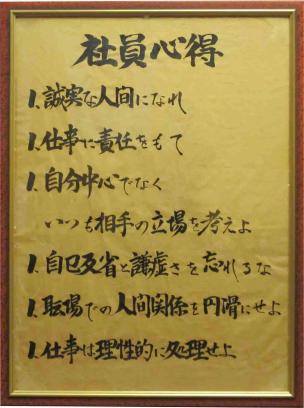 社員心得
1.誠実な人間になれ
1.仕事に責任をもて
1.自分中心でなく
いつも相手の立場を考えよ
1.自己反省と謙虚さを忘れるな
1.職場での人間関係を円滑にせよ
1.仕事は理性的に処理せよ